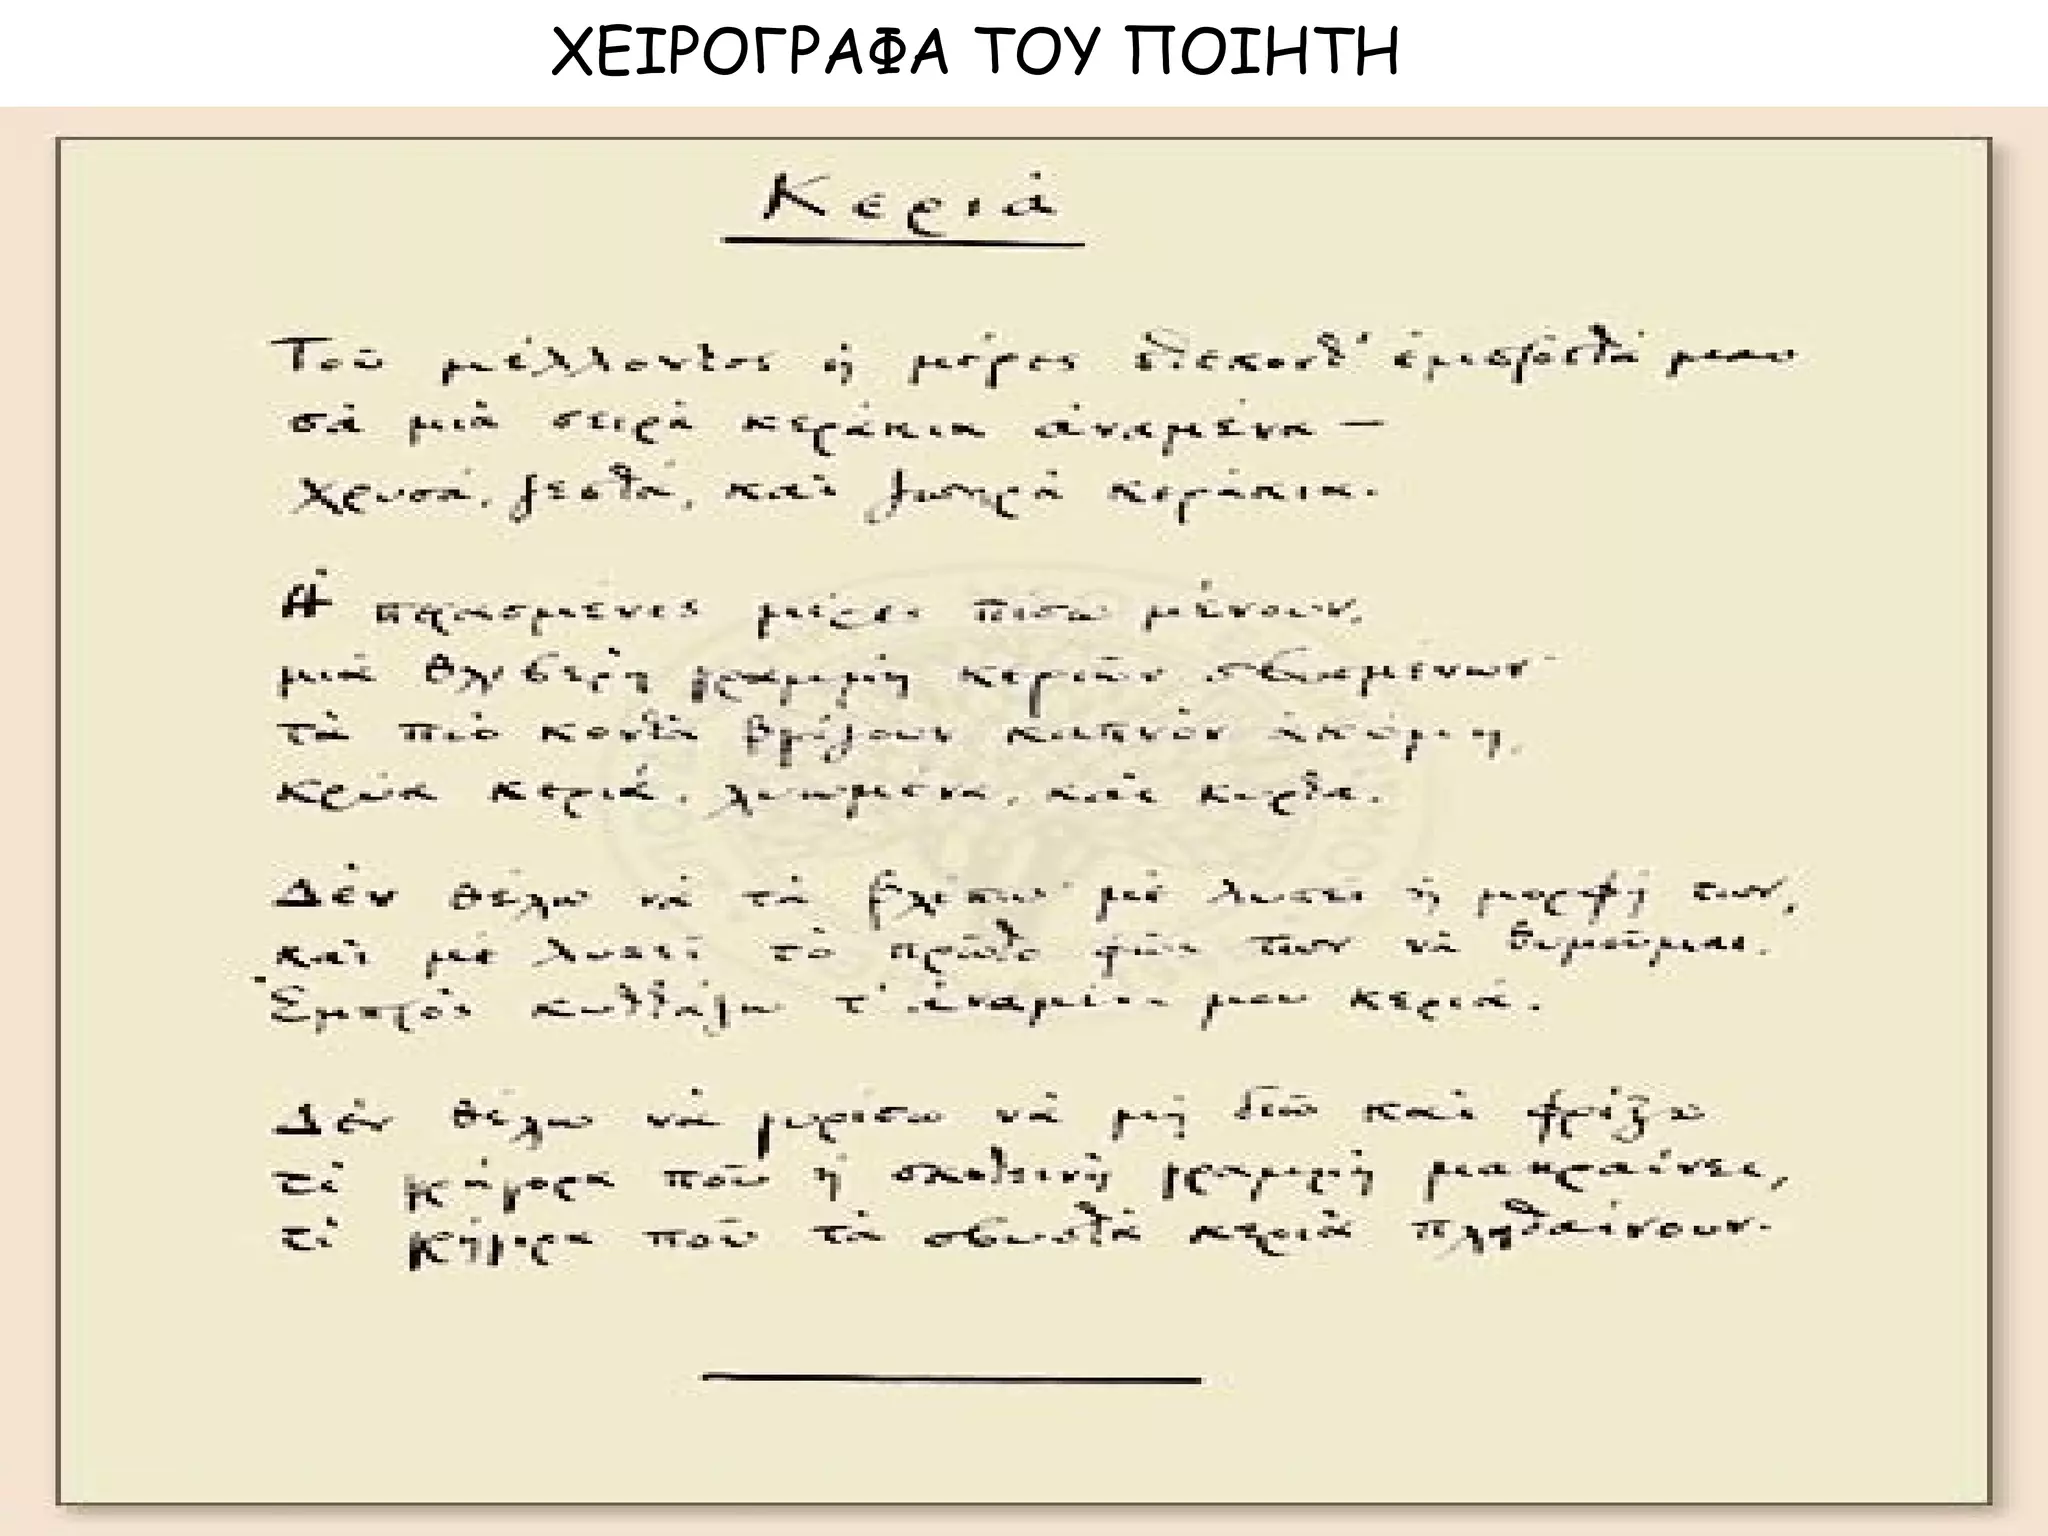 ΧΕΙΡΟΓΡΑΦΑ ΤΟΥ ΠΟΙΗΤΗ
Κεριά
Τοῦ μέλλοντος ἡ μέρες στέκοντ' ἐμπροστά μας
σὰ μιὰ σειρὰ κεράκια ἀναμένα —
χρυσά, ζεστά, καὶ ζωηρὰ κεράκια.
Ἡ περασμένες μέρες πίσω μένουν,
μιὰ θλιβερὴ γραμμὴ κεριῶν σβυσμένων·
τὰ πιὸ κοντὰ βγάζουν καπνὸν ἀκόμη,
κρύα κεριά, λυωμένα, καὶ κυρτά.
Δὲν θέλω νὰ τὰ βλέπω· μὲ λυπεῖ ἡ μορφή των,
καὶ μὲ λυπεῖ τὸ πρῶτο φῶς των νὰ θυμοῦμαι.
Ἐμπρὸς κυττάζω τ' ἀναμένα μου κεριά.
Δὲν θέλω νὰ γυρίσω νὰ μὴ διῶ καὶ φρίξω
τί γρήγορα ποῦ ἡ σκοτεινὴ γραμμὴ μακραίνει,
τί γρήγορα ποῦ τὰ σβυστὰ κεριὰ πληθαίνουν.